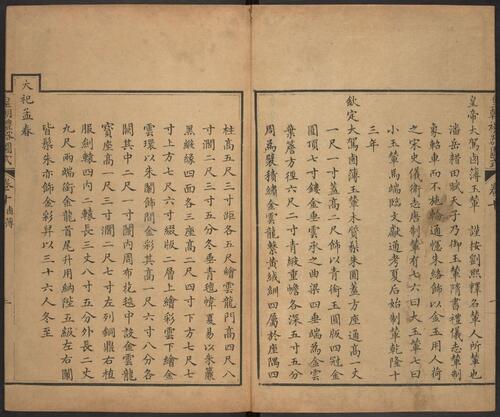 皇帝大駕鹵簿玉輦 謹按劉熙釋名輦人所輦也
潘岳耤田賦天子乃御玉輦隋書禮儀志輦制
象軺車而不施輪通幰朱絡飾以金玉用人荷
之宋史儀衛志唐制輦有七六曰大玉輦七曰
小玉輦馬端臨文獻通考夏后始制輦乾隆十
三年
欽定大駕鹵簿玉輦木質髹朱圓蓋方座通高一丈
一尺一寸蓋高二尺飾以青銜玉圓版四冠金
圓頂七寸鏤金垂雲承之曲梁四垂端為金雲
葉簷方徑六尺二寸青緞重幨各深五寸五分
周為襞積繡金雲龍繫黃絨紃四屬於座隅四
柱高五尺三寸距各五尺繪雲龍門高四尺八
寸濶二尺三寸五分冬垂青氊幃夏易以朱簾
黑緞緣四面各三座高二尺四寸下方七尺七
寸上方七尺六寸綴版二層上繪彩雲下繪金
雲環以朱闌飾間金彩其高一尺六寸八分各
闕其中二尺一寸闌内周布花毯中設金雲龍
寶座高一尺三寸濶二尺七寸左列銅鼎右植
服劍轅四内二轅長三丈八寸五分外長二丈
九尺兩端銜金龍首尾升用納陛五級左右闌
皆髹朱亦飾金彩舁以三十六人冬至
大祀孟春
皇朝禮器圖式 卷十 鹵簿 一